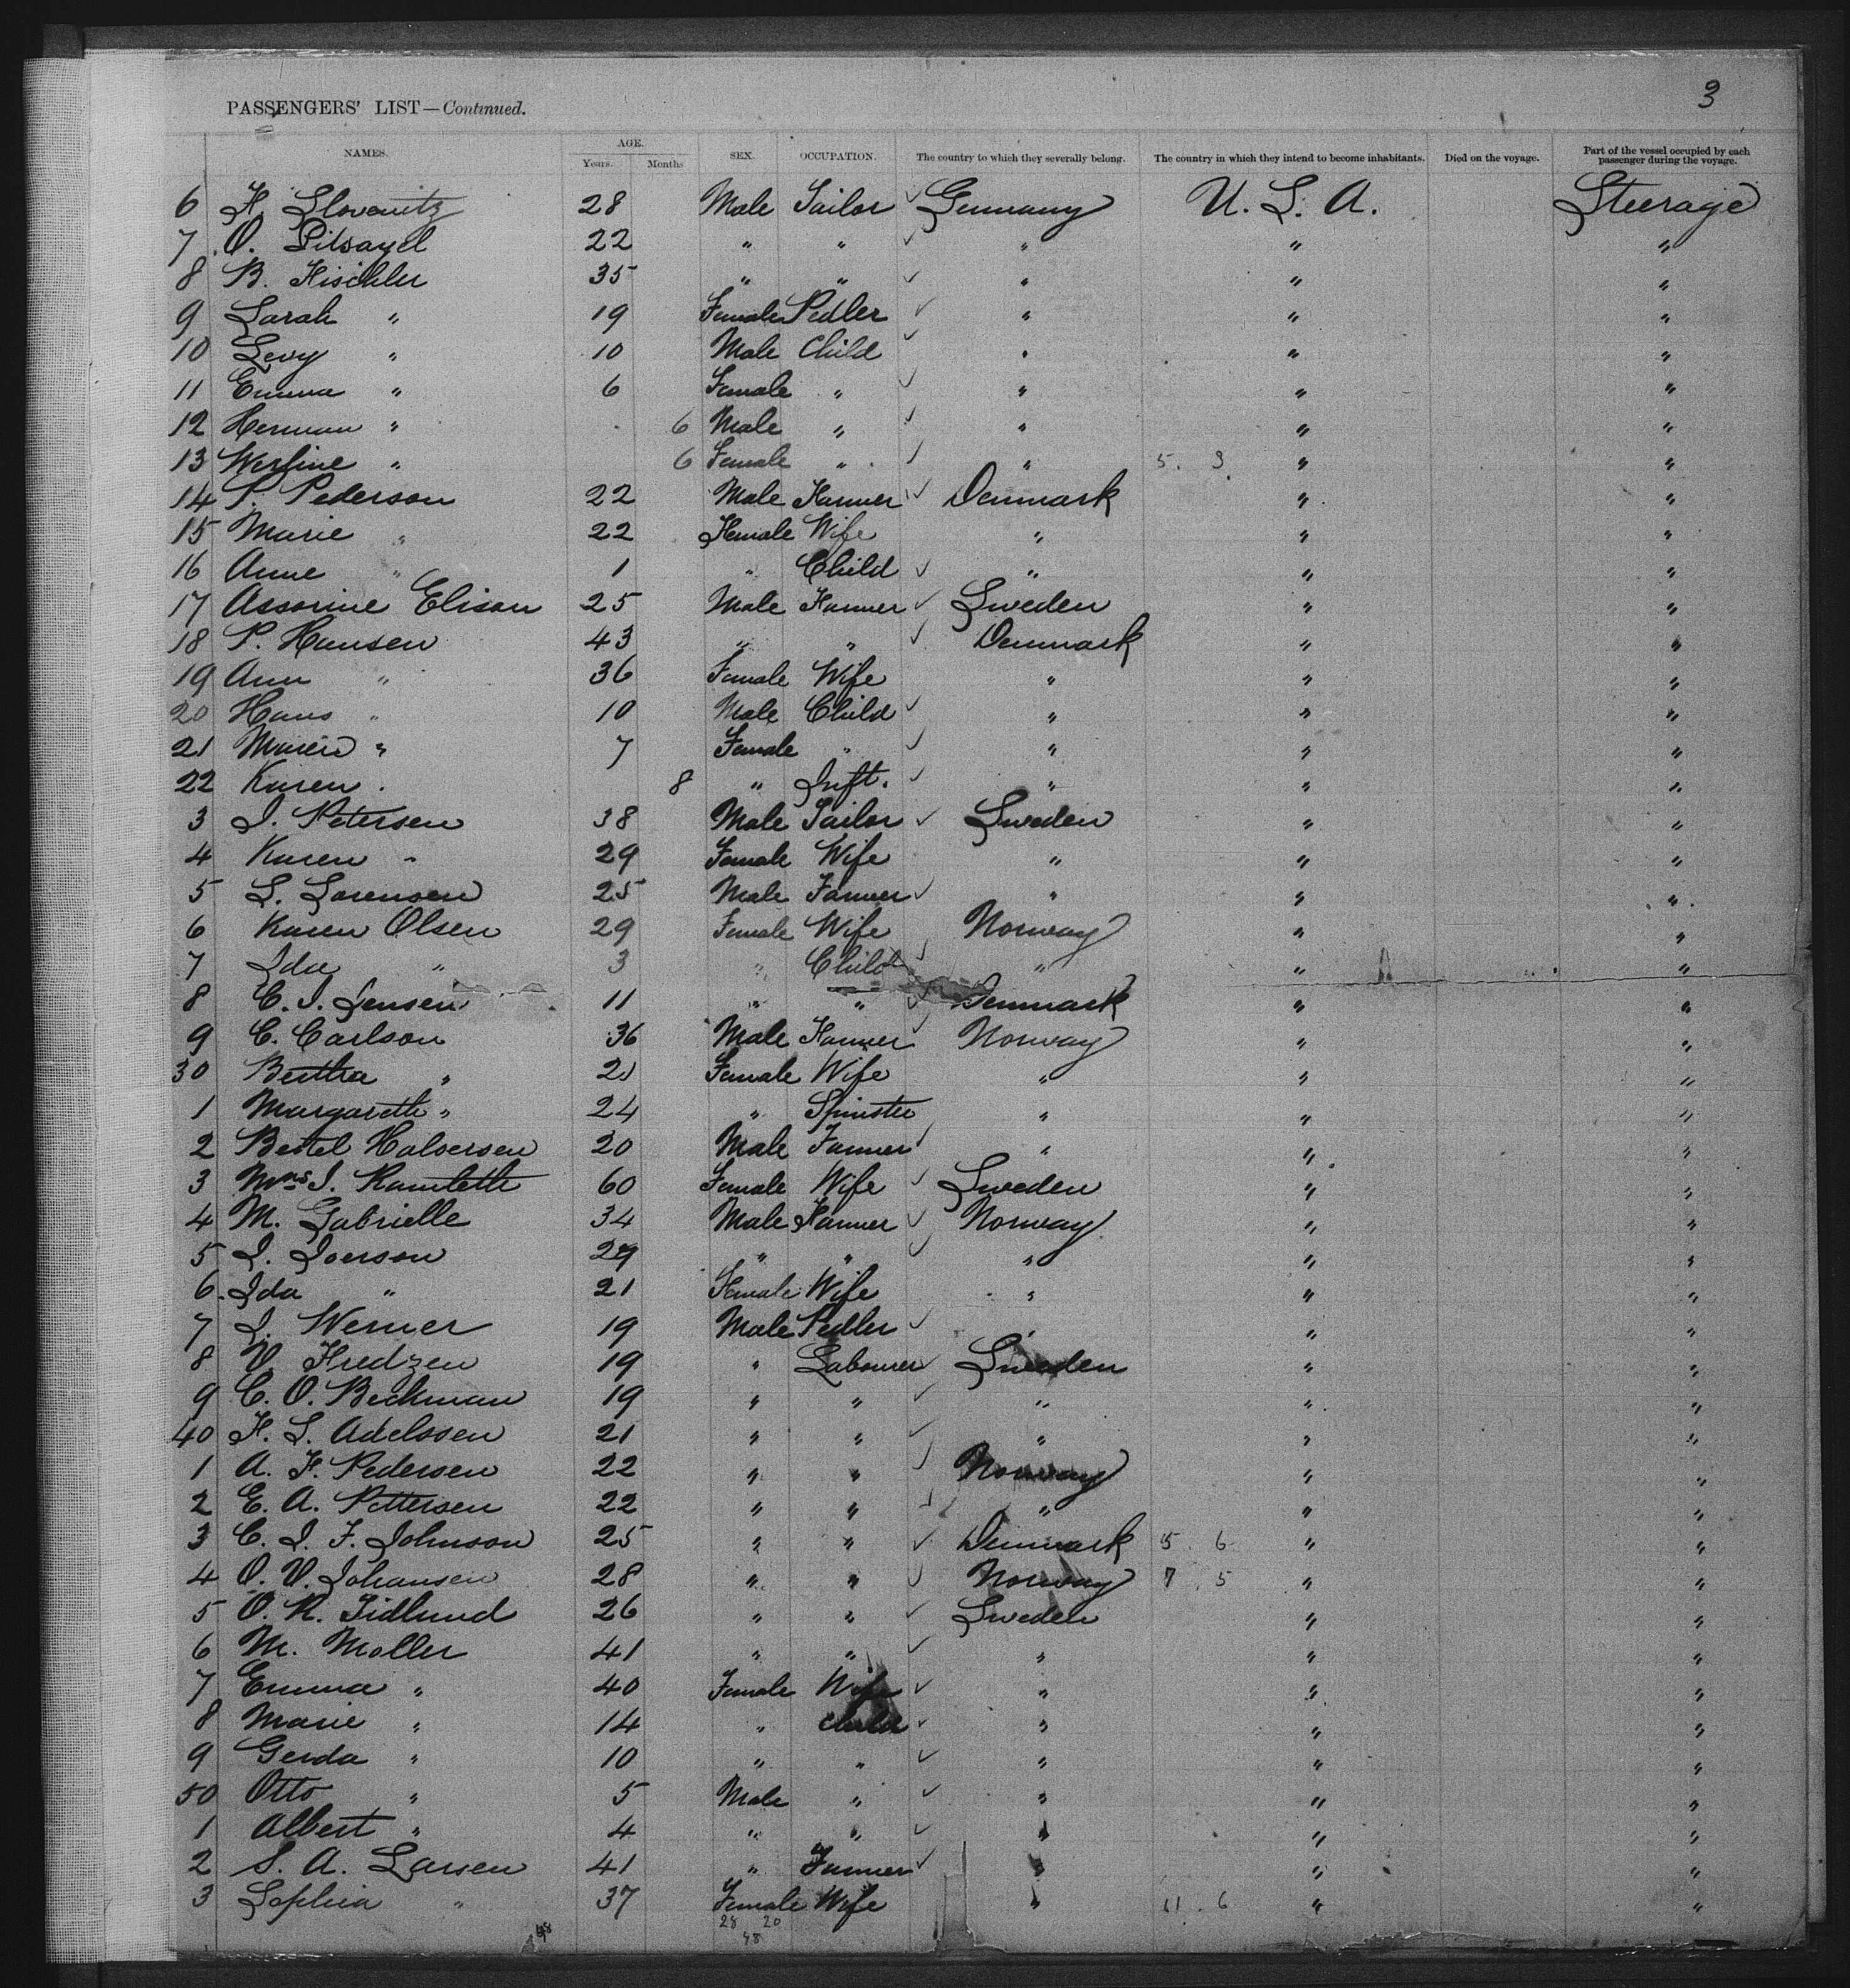 3
PASSENGERS' LIST—Continued.
NAMES. AGE. Years. Months SEX. OCCUPATION. The country to which they severally belong. The country in which they intend to become inhabitants. Died on the voyage. Part of the vessel occupied by each passenger during the voyage.
6 H. Slovovitz 28 Male Tailor ✓ Germany U. S. A. Steerage
7 O. 22 " " ✓ " " "
8 B. Fischler 35 " " ✓ " " "
9 Sarah " 19 Female Pedler ✓ " " "
10 Levy " 10 Male Child ✓ " " "
11 Emma " 6 Female " ✓ " " "
12 Herman " 6 Male " ✓ " " "
13 " 6 Female " ✓ " 5. 3 " "
14 P. Pederson 22 Male Farmer ✓ Denmark " "
15 Marie " 22 Female Wife " " "
16 Anne " 1 " Child ✓ " " "
17 Assorine Elison 25 Male Farmer ✓ Sweden " "
18 P. Hansen 43 " " ✓ Denmark " "
19 Ann " 36 Female Wife " " "
20 Hans " 10 Male Child ✓ " " "
21 Maren " 7 Female " ✓ " " "
22 Karen . 8 " Inft. ✓ " " "
3 J. Petersen 38 Male Tailor ✓ Sweden " "
4 Karen " 29 Female Wife " " "
5 S. Sorensen 25 Male Farmer ✓ " " "
6 Karen Olsen 29 Female Wife Norway " "
7 Ida " 3 " Child ✓ " " "
8 C. J. Jensen 11 " " ✓ Denmark " "
9 C. Carlson 36 Male Farmer ✓ Norway " "
30 Bertha " 21 Female Wife " " "
1 Margareth " 24 " Spinster " " "
2 Bertel Halversen 20 Male Farmer ✓ " " "
3 Mrs J. Ramleth 60 Female Wife ✓ Sweden " "
4 M. Gabrielle 34 Male Farmer ✓ Norway " "
5 J. Joerson 29 " " ✓ " " "
6 Ida " 21 Female Wife " " "
7 J. Werner 19 Male Pedler ✓ " " "
8 V. Fredzen 19 " Labourer ✓ Sweden " "
9 C. O. Beckman 19 " " ✓ " " "
40 F. S. Adelssen 21 " " ✓ " " "
1 A. F. Pedersen 22 " " ✓ Norway " "
2 E. A. Pettersen 22 " " ✓ " " "
3 C. J. F. Johnson 25 " " ✓ Denmark 5 6 " "
4 O. V. Johansen 28 " " ✓ Norway 7. 5 " "
5 O. R. Tidlund 26 " " ✓ Sweden " "
6 M. Moller 41 " " ✓ " " "
7 Emma " 40 Female Wife ✓ " " "
8 Marie " 14 " Child ✓ " " "
9 Gerda " 10 " " ✓ " " "
50 Otto " 5 Male " ✓ " " "
1 Albert " 4 " " ✓ " " "
2 S. A. Larsen 41 " Farmer ✓ " " "
3 Sophia " 37 Female Wife " 11. 6 " "
28 20
48 48